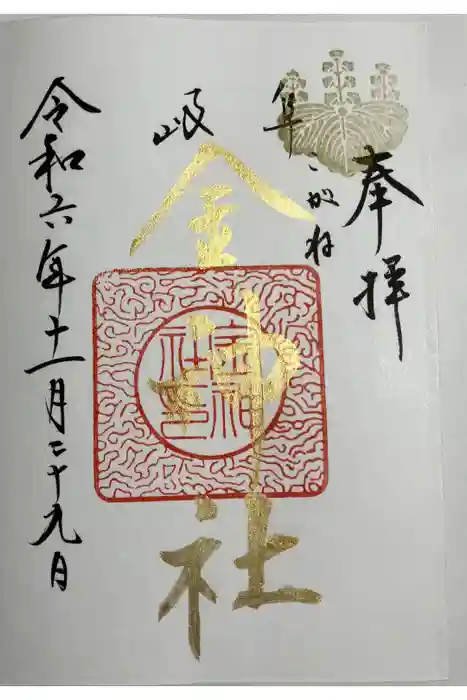 奉拝
岐阜
こがね
金神社
令和六年十一月二十九日